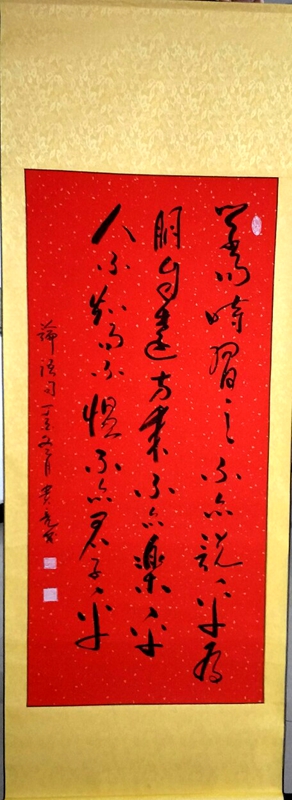 學而時習之不亦說乎有
朋自遠方來不亦樂乎
人不知而不慍不亦君子乎
論語句 丁亥